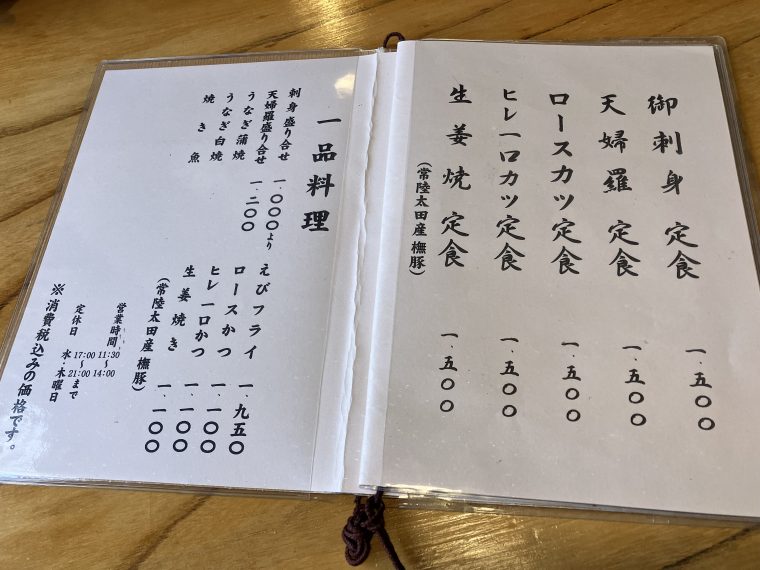 御刺身定食 一、五〇〇
天婦羅定食 一、五〇〇
ロースカツ定食 一、五〇〇
ヒレ一口カツ定食 一、五〇〇
生姜焼定食 一、五〇〇
(常陸太田産 橅豚)
一品料理
刺身盛り合せ 一、〇〇〇より
天婦羅盛り合せ 一、二〇〇
うなぎ蒲焼
うなぎ白焼
焼き魚
えびフライ 一、九五〇
ロースかつ 一、一〇〇
ヒレ一口かつ 一、一〇〇
生姜焼き 一、一〇〇
(常陸太田産 橅豚)
営業時間 11:30〜14:00
17:00〜21:00まで
定休日 水・木曜日
※消費税込みの価格です。